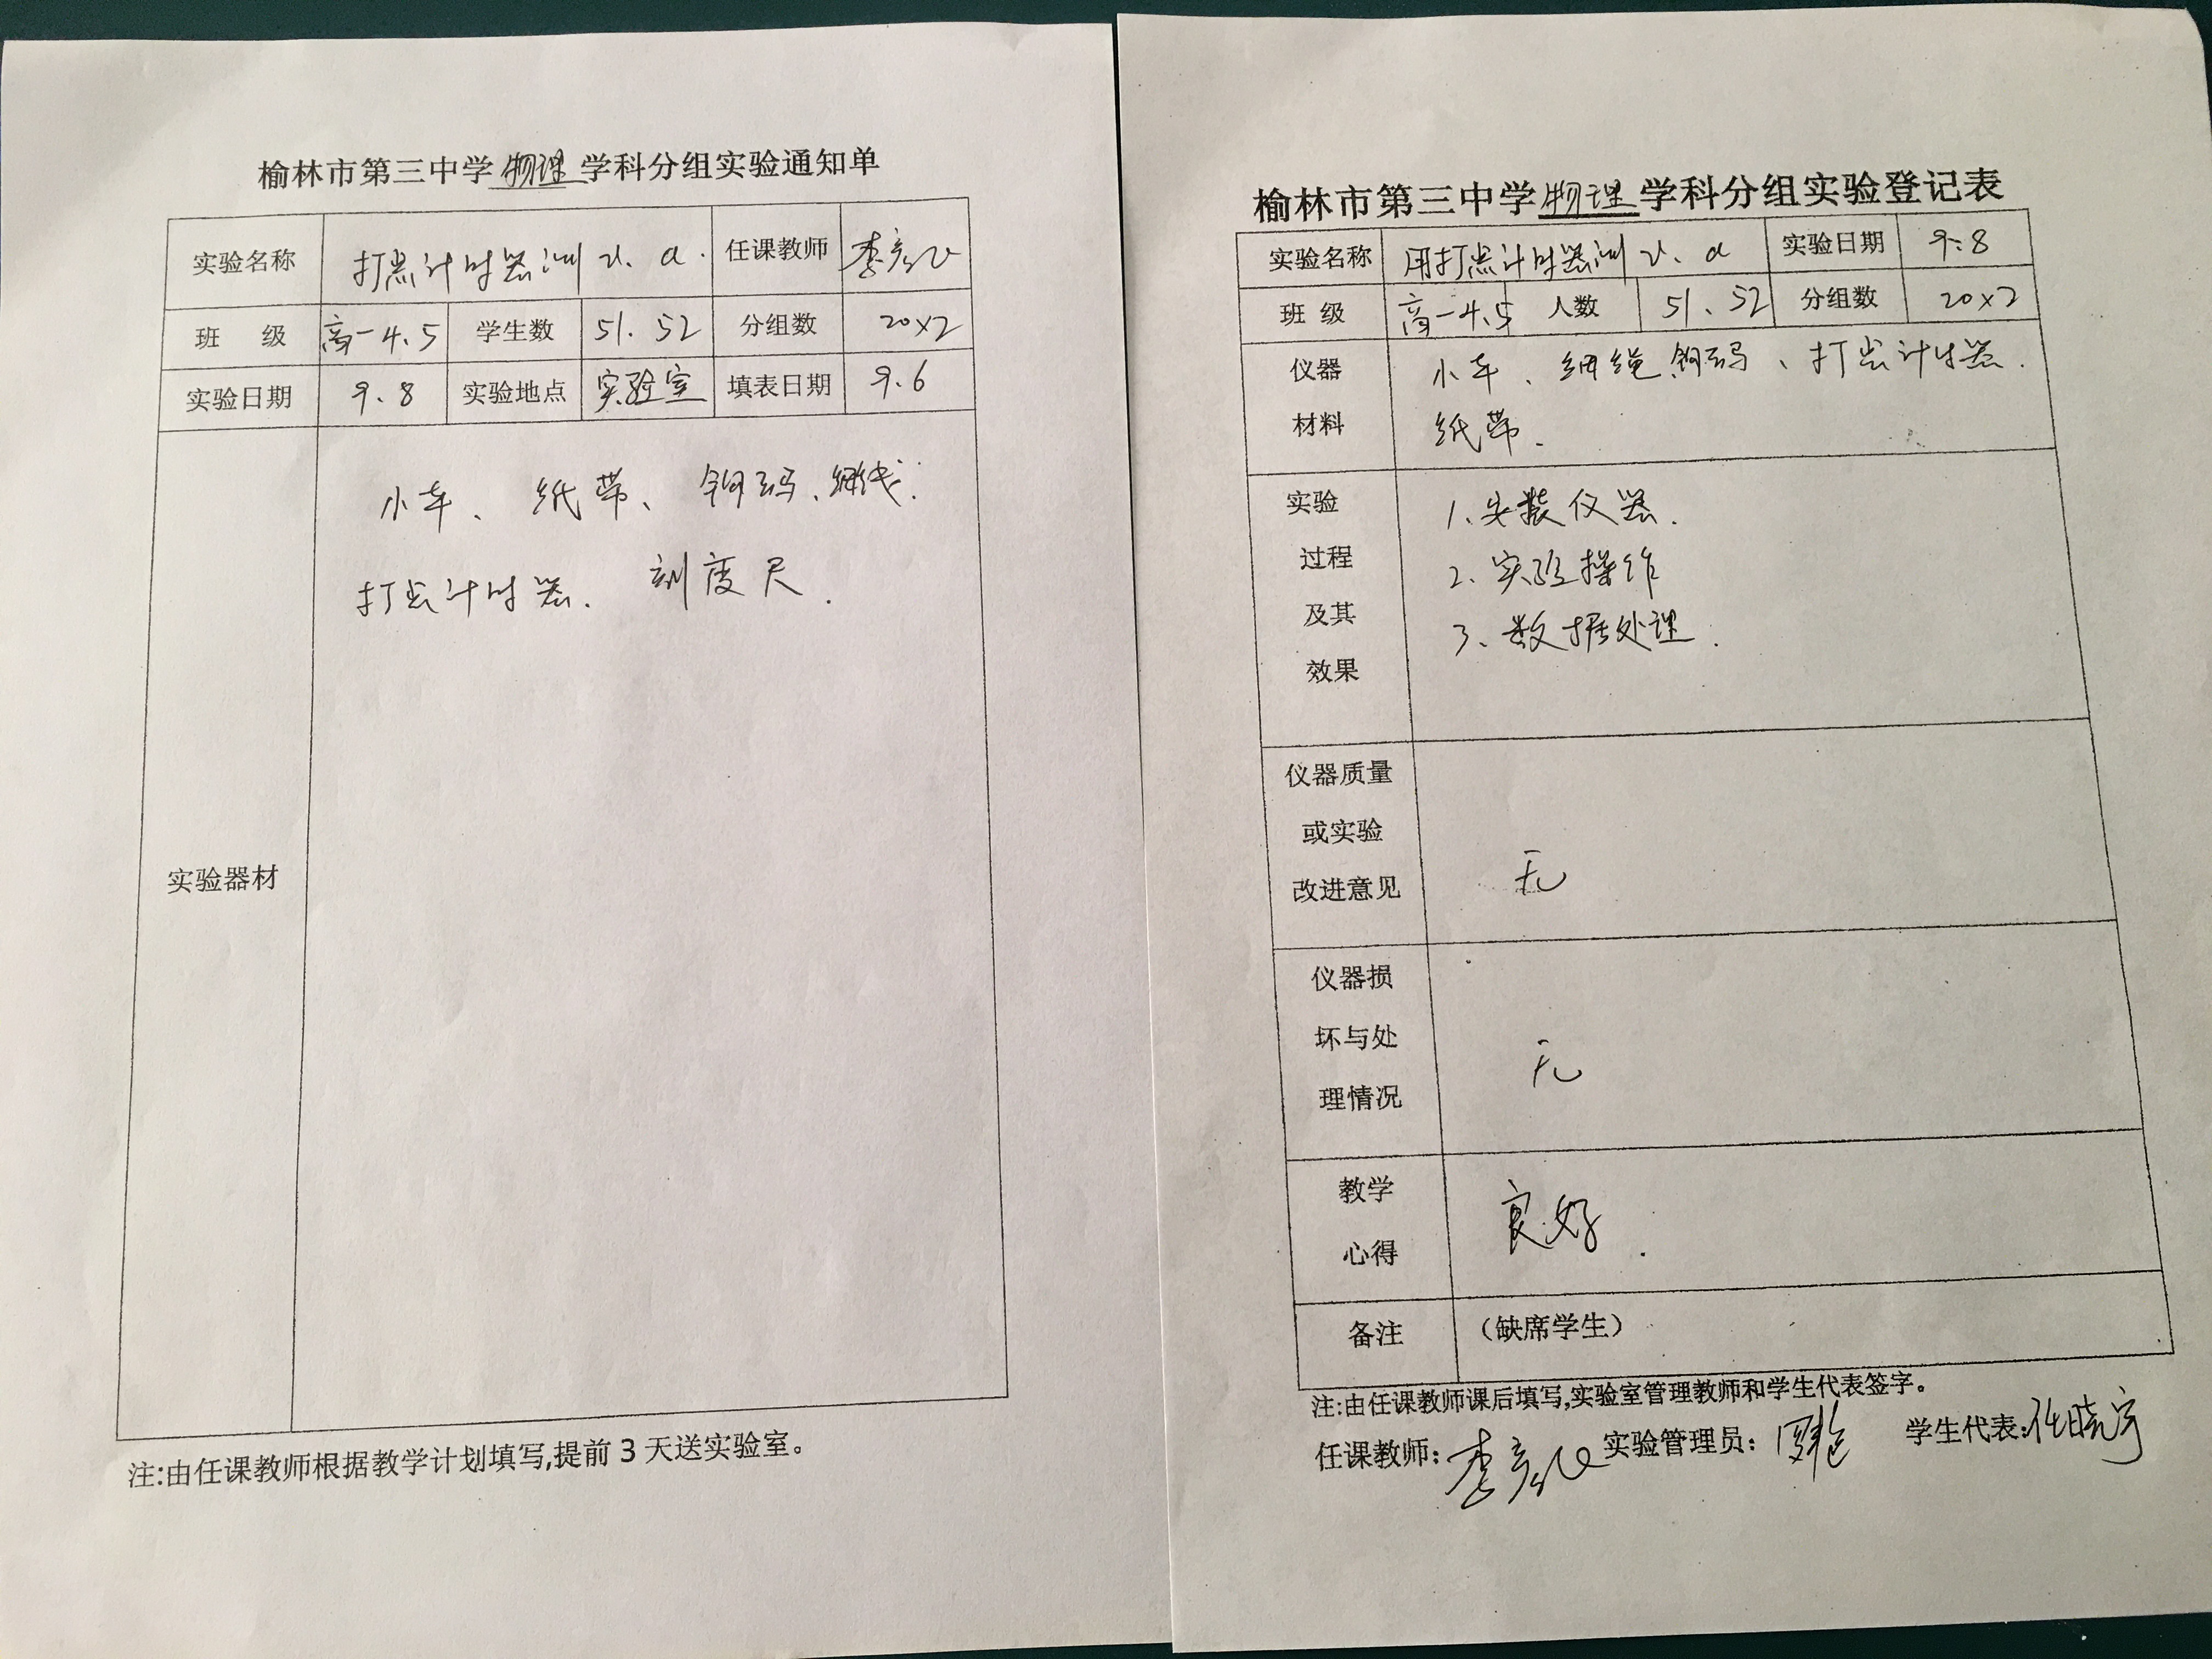 榆林市第三中学物理学科分组实验通知单
实验名称 打点计时器测 v. a. 任课教师 李彦
班 级 高一4、5 学生数 51. 52 分组数 20×2
实验日期 9、8 实验地点 实验室 填表日期 9.6
实验器材
小车、纸带、钩码、细线.
打点计时器. 刻度尺.
注:由任课教师根据教学计划填写,提前3天送实验室。
榆林市第三中学物理学科分组实验登记表
实验名称 用打点计时器测 v. a 实验日期 9.8
班 级 高一4、5 人数 51. 52 分组数 20×2
仪器
材料
小车、细绳、钩码、打点计时器.
纸带.
实验
过程
及其
效果
1、安装仪器.
2、实验操作
3、数据处理.
仪器质量
或实验
改进意见
无
仪器损
坏与处
理情况
无
教学
心得
良好.
备注 (缺席学生)
注:由任课教师课后填写,实验室管理教师和学生代表签字。
任课教师: 李彦 实验管理员: 学生代表:任晓宇